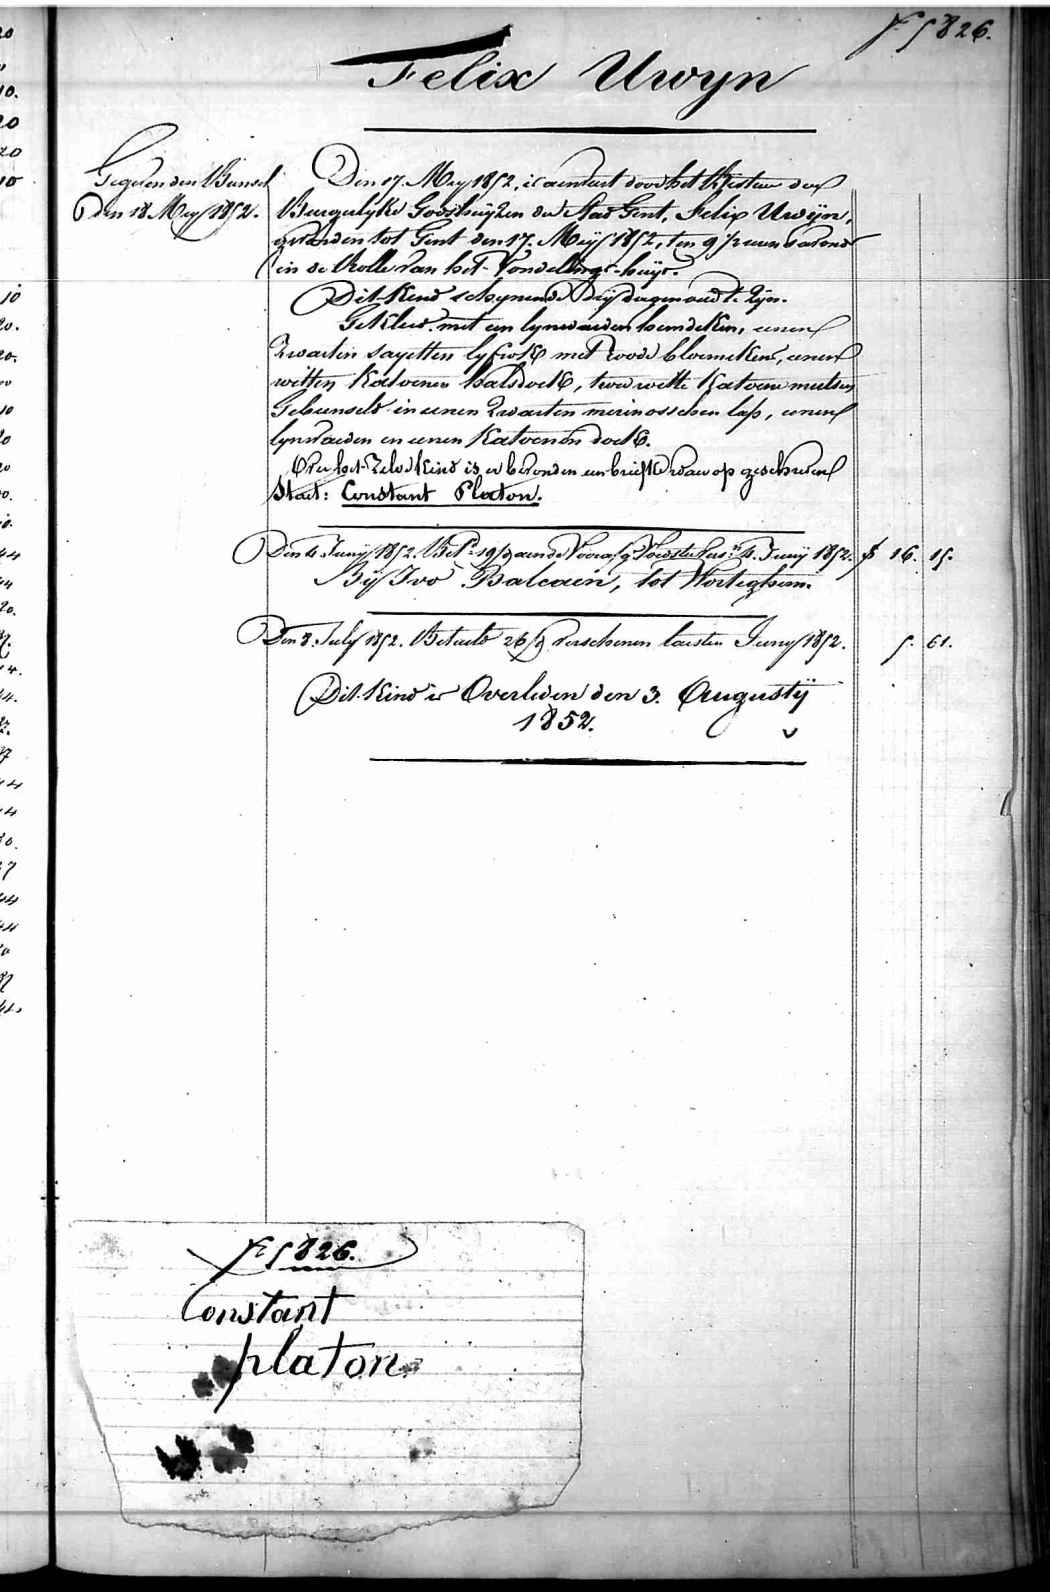 F. 5826.
Felix Uwyn
Gegeven den Bunsel
den 18 Mey 1852.
Den 17. Mey 1852, is aenveert door het Bestuer der
Burgerlyke Godshuyzen der Stad Gent, Felix Uwÿn,
gevonden tot Gent den 17. Meÿ 1852, ten 9 ½ uren s'avonds
in de Rolle van het Vondelings-huys.
Dit Kind schynende dry dagen oud te Zyn.
Gekleed met een lynwaeden hemdeken, eenen
Zwarten sayetten lyfrok met roode bloemekens, eenen
witten Katoenen halsdoek, twee witte Katoene mutsen
Gebunseld in eenen Zwarten merinosschen lap, eenen
lynwaeden en eenen Katoenen doek.
Over het Zelve Kind is er bevonden een briefke waer op geschreven
Staet: Constant Platon.
Den 4 Juny 1852. Bet.d 19/3 aen de Voedster 4. Juny 1852. f 16. 15.
Bÿ Ivo Balcaen, tot Worteghem.
Den 8. July 1852. Betaeld 26/3 verschenen laesten Juny 1852. 5. 61.
Dit Kind is Overleden den 3. Augustÿ
1852.
F. 5826.
Constant
platon